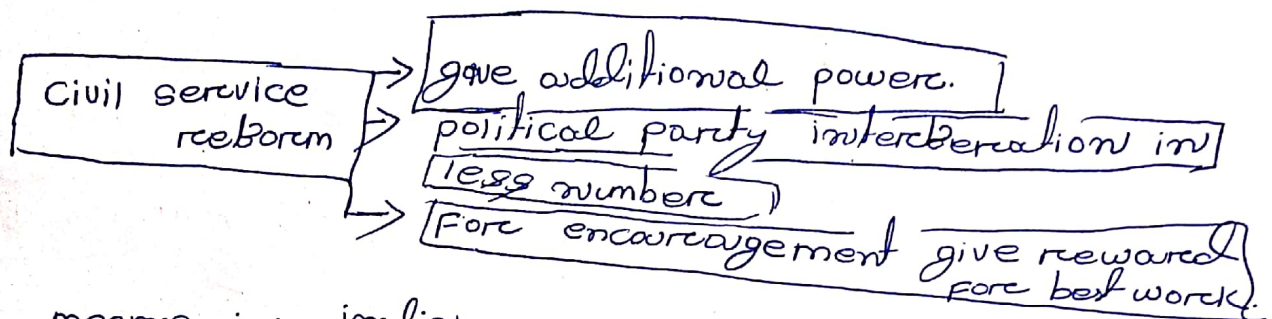 Civil service
reform
give additional power.
political party interferation in
less number
For encouragement give reward
For best work.